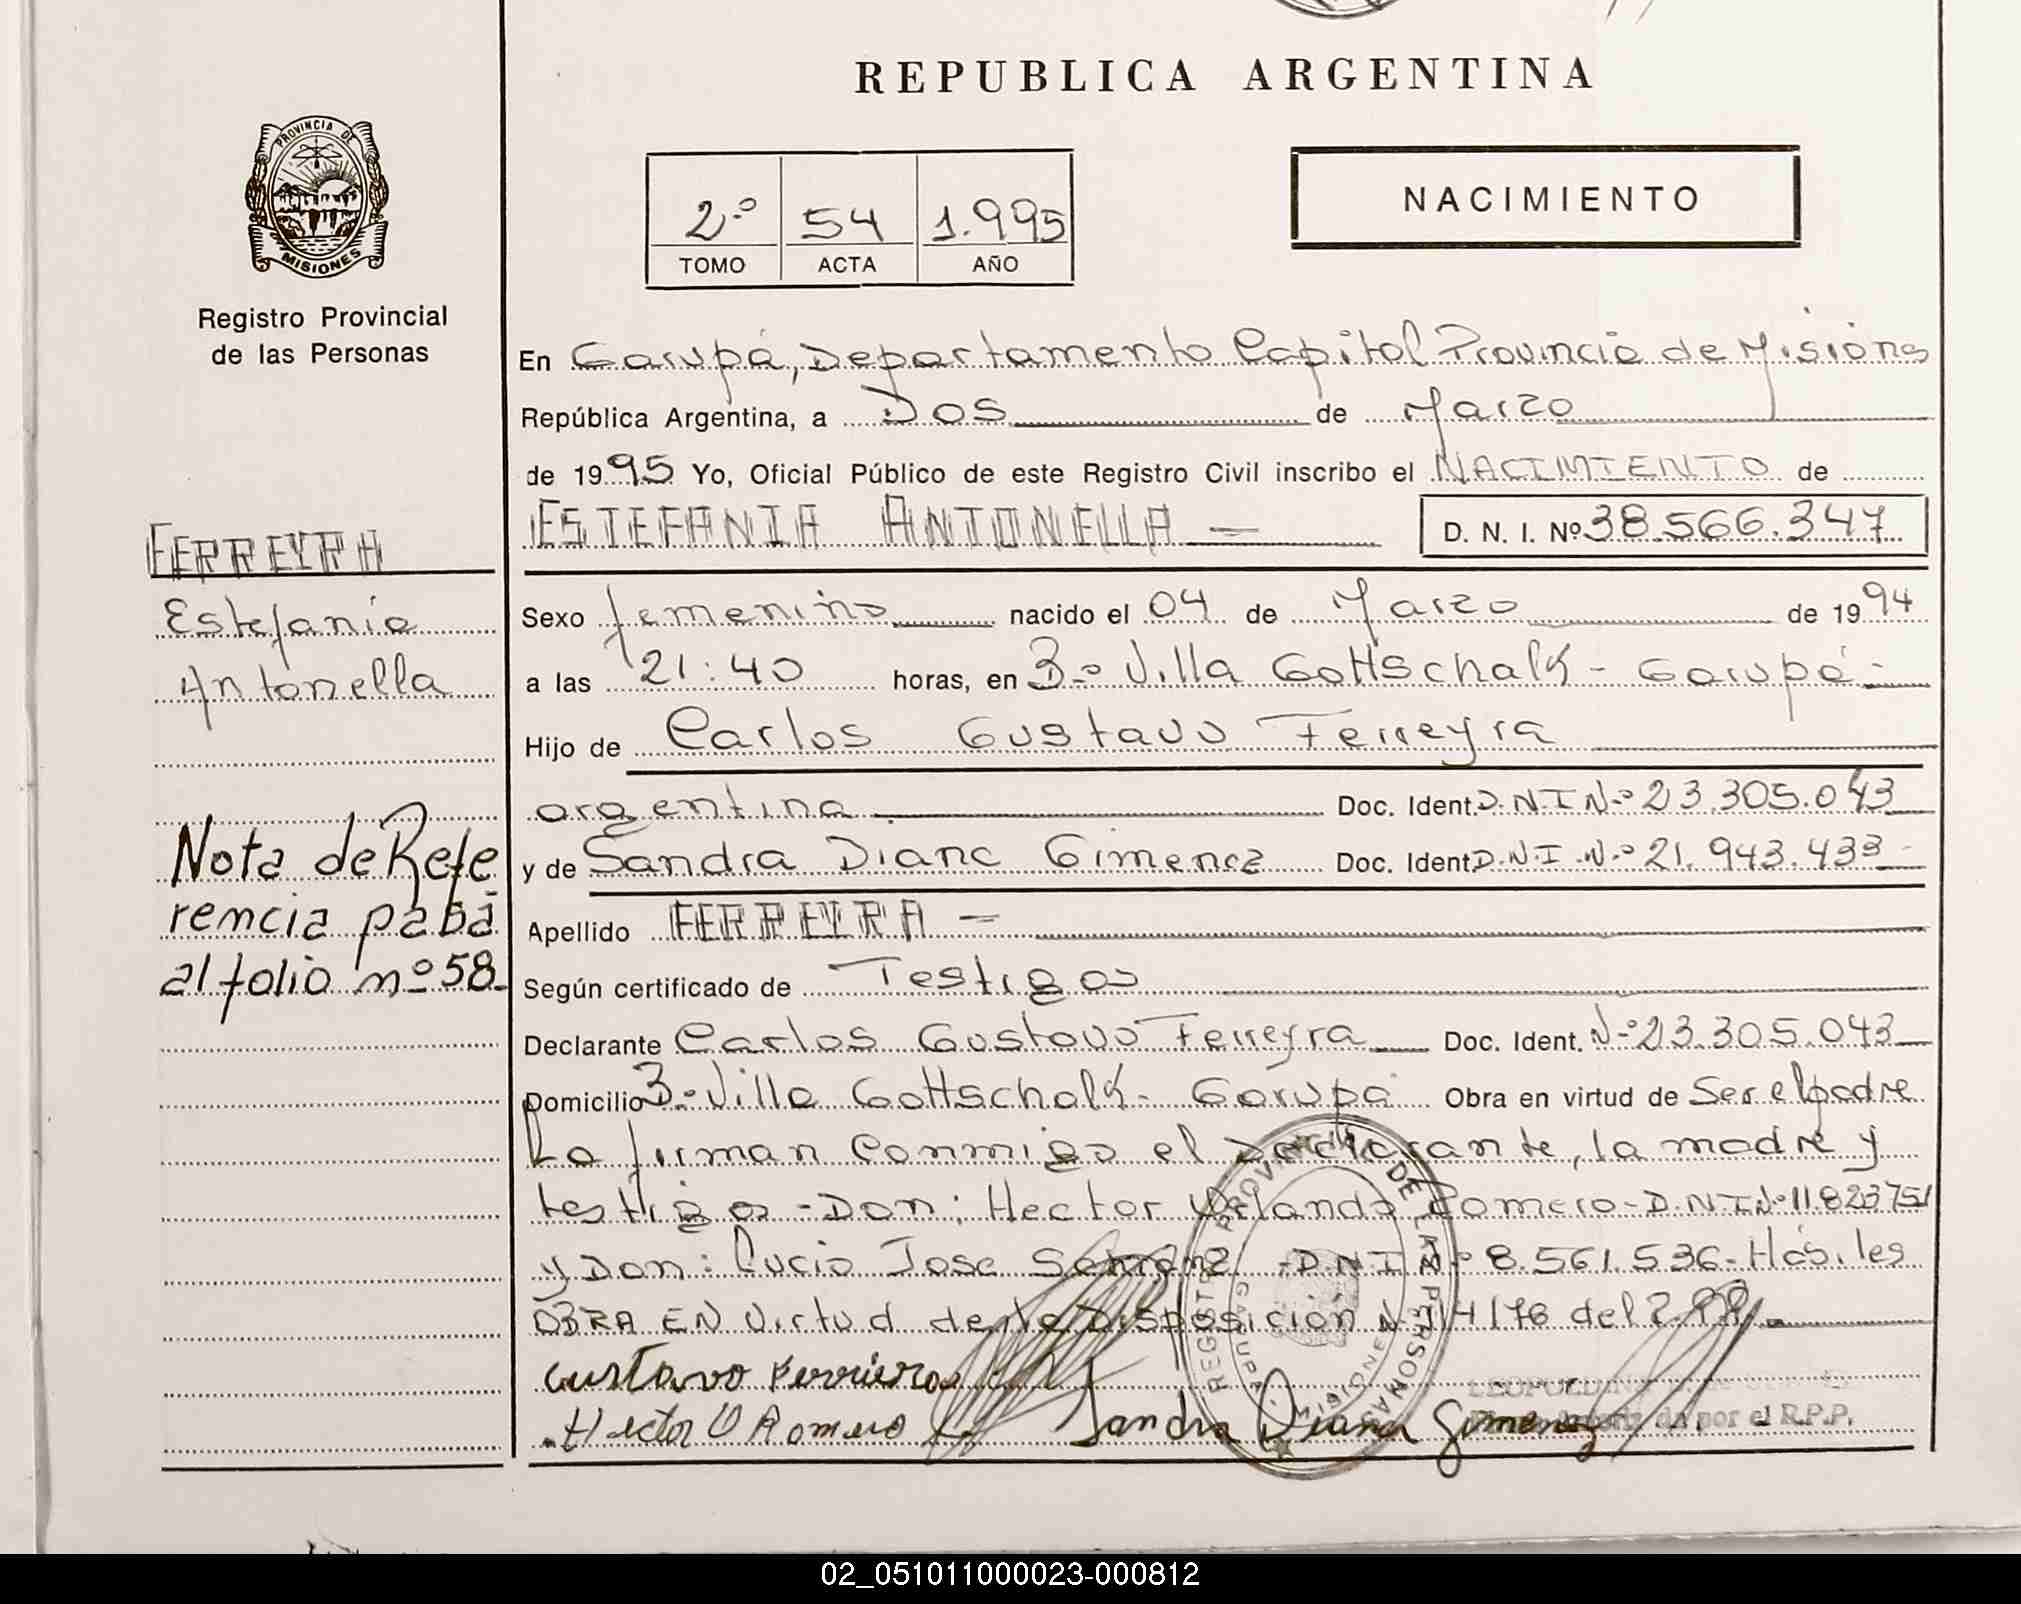 REPUBLICA ARGENTINA
PROVINCIA DE
MISIONES
Registro Provincial
de las Personas
2.º 54 1.995
TOMO ACTA AÑO
NACIMIENTO
En Garupá, Departamento Capital Provincia de Misiones
República Argentina, a Dos de Marzo
de 1995 Yo, Oficial Público de este Registro Civil inscribo el NACIMIENTO de
ESTEFANIA ANTONELLA — D. N. I. Nº 38.566.347
FERREYRA
Estefania
Antonella
Sexo femenino nacido el 04 de Marzo de 1994
a las 21:40 horas, en B.º Villa Gottschalk - Garupá -
Hijo de Carlos Gustavo Ferreyra
argentina Doc. Ident. D.N.I N.º 23.305.043
y de Sandra Diana Gimenez Doc. Ident. D.N.I.N.º 21.943.433 -
Apellido FERREYRA —
Según certificado de Testigos
Declarante Carlos Gustavo Ferreyra Doc. Ident. N.º 23.305.043
Domicilio B.º Villa Gottschalk - Garupá Obra en virtud de Ser el padre
La firman conmigo el Declarante, la madre y
testigos - Don: Hector Orlando Romero - D.N.I N.º 11.823751
y Don: Lucio Jose - D.N.I N.º 8.561.536 - Habiles
OBRA EN Virtud de la Disposicion N.º 14/76 del
Nota de Refe
rencia pasa
al folio nº 58
REGISTRO PROVINCIAL DE LAS PERSONAS
GARUPA MISIONES
Gustavo Ferreira
Hector O Romero
Sandra Diana Gimenez
por el R.P.P.
02_051011000023-000812